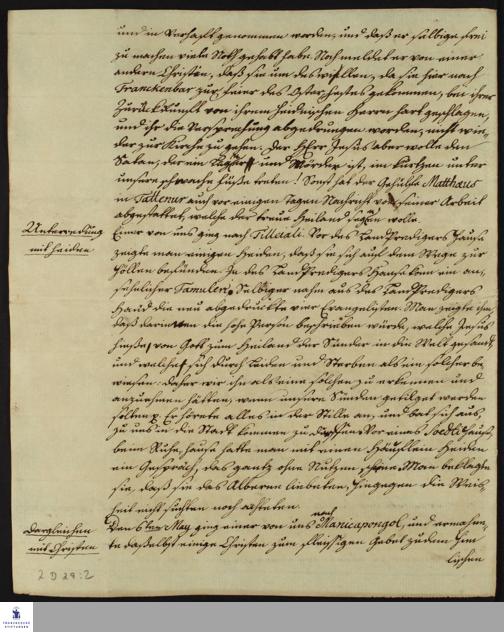 und in Verhaft genommen worden, und daß er selbige frei
zu machen viele Noth gehabt habe. Noch meldete er von einer
andern Christin, daß sie um des willen, da sie hier nach
Franckenbar zur Feier des Osterfestes gekommen, bei ihrer
Zurückkunft von ihrem heidnischen Herrn hart geschlagen,
und ihr die Versprechung abgedrungen worden, nicht wie
der zur Kirche zu gehen. Der HErr Jesus aber wolle den
Satan, der ein Lügner und Mörder ist, im kurtzen unter
unsere schwache Füße treten! Sonst hat der Gehülfe Matthäus
in Tattenur auch vor einigen Tagen Nachricht von seiner Arbeit
abgestattet, welche der treue Heiland segnen wolle.
Unterredung
mit Heiden
Einer von uns ging nach Tillaali. Vor des Landpredigers Hause
zeigte man einigen Heiden, daß sie sich auf dem Wege zur
Höllen befänden. In des Landpredigers Hause kam ein an,
sehnlicher Tamuler. Selbiger nahm aus des Landpredigers
Hand die neu abgedruckte vier Evangelisten. Man zeigte ihm
daß darinnen die hohe Person beschrieben würde, welche Jesus
hieße, von Gott zum Heiland der Sünder in die Welt gesandt
und welcher sich durch Leiden und Sterben als ein solcher be
wiesen. Daher wir ihn als einen solchen zu erkennen und
anzunehmen hätten, wenn unsere Sünden getilget werden
solten. Er hörete alles in der Stille an, und bat sich aus,
zu uns in die Stadt kommen zu dürfen. Vor eines Hause,
beim Ruhehause hatte man mit einem Häuflein Heiden
ein Gespräch, das gantz ohne Nutzen schiene. Man beklagte
sie, daß sie das Alberne liebeten, hingegen die Weis,
heit nicht suchten noch achteten.
Dergleichen
mit Christen
Den 6ten May ging einer von uns nach Manicapongöl, und ermahne,
te daselbst einige Christen zum fleissigen Gebet zu dem him
lischen
2 D 29:2
FRANCKESCHE
STIFTUNGEN